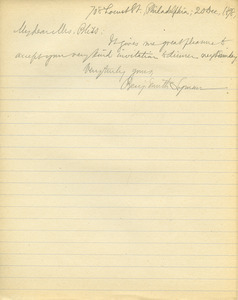 708 Locust St. Philadelphia, 20 Dec.
My dear Mrs. Bliss:
It gives me great pleasure to
accept your very kind invitation to dinner
Very truly yours,
Benj. Smith Lyman.